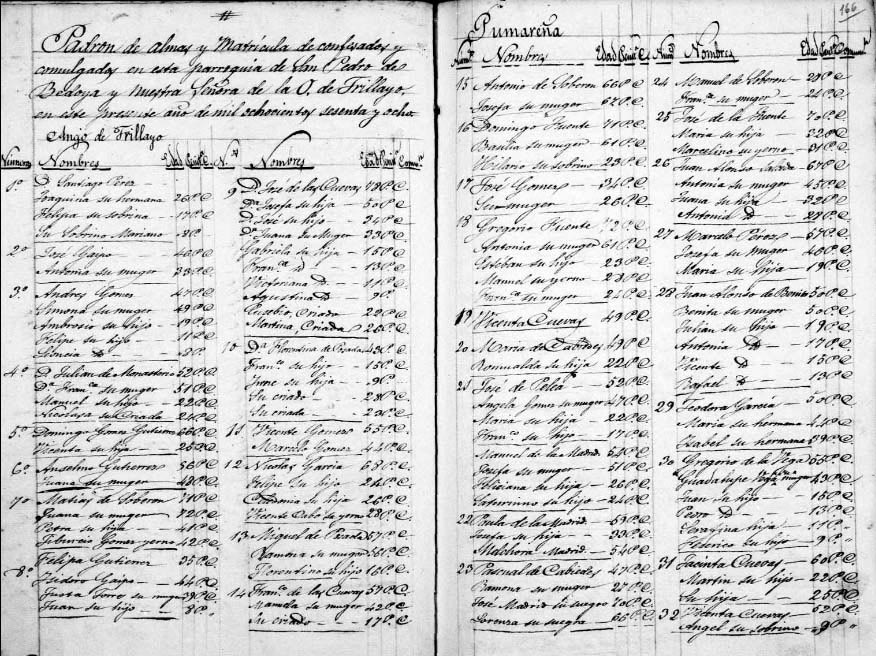 Padron de almas y Matrícula de confesados y
comulgados en esta parroquia de San Pedro de
Bedoya y Nuestra Señora de la O. de Trillayo,
en este presente año de mil ochocientos sesenta y ocho.
Ango de Trillayo
Número Nombres Edad
1º D. Santiago Perez
Joaquina su hermana 26 P. C.
Felipa su sobrina 17 P. C.
Su Sobrino Mariano
2º José Gaipo 40 P. C.
Antonia su muger 33 P. C.
3º Andres Gomez 47 P. C.
Simona su muger 49 P. C.
Ambrosio su hijo 19 P. C.
Felipe su hijo 11
4º D. Julian de Monasterio 52 P. C.
Dª Franca su muger 51 P. C.
Manuel su hijo 22 P. C.
Nicolasa su Criada 24 P. C.
5º Domingo Gomez Gutierrez 66 P. C.
Vicenta su hija 25 P. C.
6º Anselmo Gutierrez 56 P. C.
Juana su muger 48 P. C.
7º Matias de Soberon 71 P. C.
Juana su muger 72 P. C.
Petra su hija 41 P. C.
Tiburcio Gomez yerno 42 P. C.
Felipa Gutierrez 35 P. C.
8º Isidoro Gaipo 44 P. C.
Justa Torre su muger 39 P. C.
Juan su hijo 8 P.
N. Nombres Edad
9 D. Jose de las Cuevas 78 P. C.
Dª Josefa su hija 50 P. C.
D. José su hijo 34 P. C.
Dª Juana su Muger 33 P. C.
Gabriela su hija 15 P. C.
Franca id 13 P. C.
Victoriana id 11 P. C.
Agustina id 9 P.
Eusebio, Criado 22 P. C.
Martina, Criada 26 P. C.
10 Dª Florentina de Posada 43 P. C.
Franco su hijo 15 P. C.
Irene su hija 9 P. C.
Su criado 28 P. C.
Su criada 23 P. C.
11 Vicente Gomez 55 P. C.
Marcelo Gomez 44 P. C.
12 Nicolas Garcia 68 P. C.
Felipe su hijo 24 P. C.
su hija 26 P. C.
Vicente Cabo su yerno 28 P. C.
13 Miguel de Posada 57 P. C.
Ramona su muger 56 P. C.
Florentino su hijo 16 P. C.
14 Franco de las Cuevas 57 P. C.
Manuela su muger 42 P. C.
Su criado 17 P. C.
166
Pumareña
Núm. Nombres Edad
15 Antonio de Soberon 66 P. C.
Josefa su muger 67 P. C.
16 Domingo Fuente 71 P. C.
Basilia su muger 61 P. C.
Hilario su sobrino 23 P. C.
17 José Gomez 34 P. C.
Su muger 26 P. C.
18 Gregorio Fuente 72 P. C.
Antonia su muger 61 P. C.
Esteban su hijo 23 P. C.
Manuel su yerno 28 P. C.
Franca su muger 24 P. C.
19 Vicenta Cuevas 49 P. C.
20 Maria de Cabiedes 49 P. C.
Romualda su hija 22 P. C.
21 José de 52 P. C.
Angela Gomez su muger 47 P. C.
Maria su hija 22 P. C.
Franco su hijo 17 P. C.
Manuel de la Madrid 54 P. C.
Josefa su muger 51 P. C.
Feliciana su hija 26 P. C.
Saturnino su hijo 24 P. C.
22 Paula de la Madrid 69 P. C.
Josefa su hija 33 P. C.
Melchora Madrid 54 P. C.
23 Pascual de Cabiedes 47 P. C.
Ramona su muger 27 P. C.
José Madrid su suegro 70 P. C.
Lorenza su suegra 66 P. C.
Núm. Nombres Edad
24 Manuel de Soberon 28 P. C.
Franca su muger 24 P. C.
25 José de la Fuente 70 P. C.
Maria su hija 32 P. C.
Marcelino su yerno 31 P. C.
26 Juan Alonso 67 P. C.
Antonia su muger 45 P. C.
Juana su hija 32 P. C.
Antonia id 28 P. C.
27 Marcelo Pérez 57 P. C.
Josefa su muger 40 P. C.
Maria su hija 19 P. C.
28 Juan Alonso de Benito 50 P. C.
Benita su muger 50 P. C.
Julian su hijo 19 P. C.
Antonia id 17 P. C.
Vicente id 15 P. C.
Rafael id 13 P. C.
29 Teodora Garcia 50 P. C.
Maria su hermana 44 P. C.
Isabel su hermana 39 P. C.
30 Gregorio de la Vega 55 P. C.
Guadalupe Vega su muger 43 P. C.
Juan su hijo 15 P. C.
Pedro id 13 P. C.
Serafina hija 11 P.
Federico su hijo 9 P.
31 Jacinta Cuevas 60 P. C.
Martin su hijo 22 P. C.
Su hija 25 P. C.
32 Vicenta Cuevas 62 P. C.
Angel su sobrino 9 P.